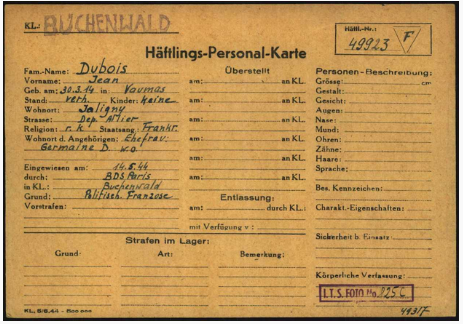 KL.: BUCHENWALD
Häftl.-Nr.:
49923 F
Häftlings-Personal-Karte
Fam.-Name: Dubois
Vorname: Jean
Geb. am: 30.3.14 in Vaumas
Stand: verh. Kinder: keine
Wohnort: Jaligny
Strasse: Dep. Allier
Religion: r.k. Staatsang.: Frankr.
Wohnort d. Angehörigen: Ehefrau:
Germaine D. w.o.
Eingewiesen am: 14.5.44
durch: BDS Paris
in KL.: Buchenwald
Grund: Politisch. Franzose
Vorstrafen:
Überstellt
am: an KL.
am: an KL.
am: an KL.
am: an KL.
am: an KL.
am: an KL.
Entlassung:
am: durch KL.:
mit Verfügung v.:
Personen-Beschreibung:
Grösse: cm
Gestalt:
Gesicht:
Augen:
Nase:
Mund:
Ohren:
Zähne:
Haare:
Sprache:
Bes. Kennzeichen:
Charakt.-Eigenschaften:
Sicherheit b. Einsatz:
Körperliche Verfassung:
Strafen im Lager:
Grund: Art: Bemerkung:
I.T.S. FOTO No.
KL, 5/5.44